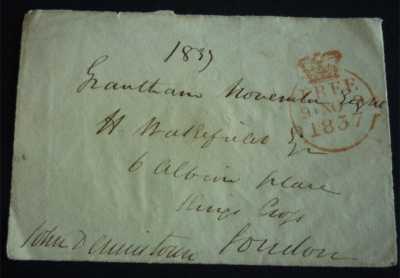 1837
Grantham November
H Wakefield Esqr
6 Albion place
Kings Cross
London
John Dennistoun
FREE
NO
1837